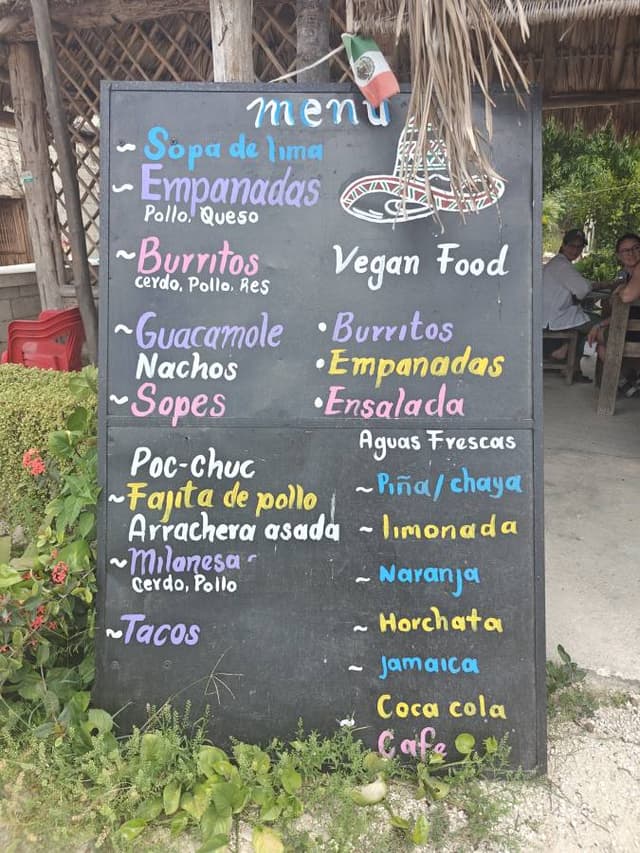 menu
~ Sopa de lima
~ Empanadas
Pollo, Queso
~ Burritos
cerdo, Pollo, Res
~ Guacamole
Nachos
~ Sopes
Vegan Food
• Burritos
• Empanadas
• Ensalada
Poc-chuc
~ Fajita de pollo
Arrachera asada
~ Milanesa
cerdo, Pollo
~ Tacos
Aguas Frescas
~ Piña/chaya
~ limonada
~ Naranja
~ Horchata
~ Jamaica
Coca cola
Cafe